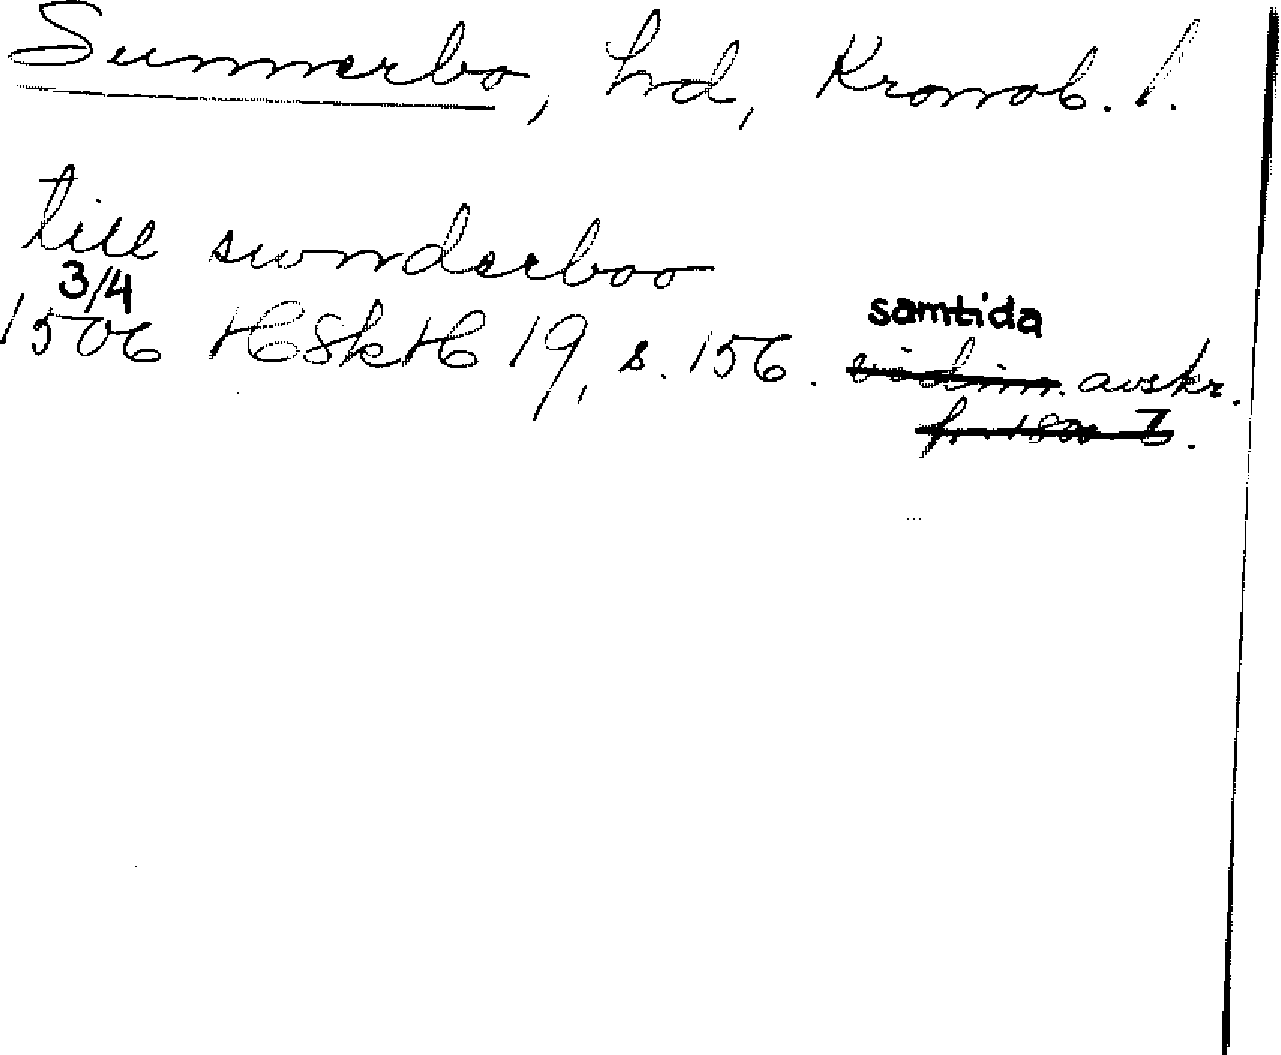 Sunnerbo, hd, Kronob. l.
till swnderboo
3/4
1506 HSkH 19, s. 156. samtida
vidim. avskr.